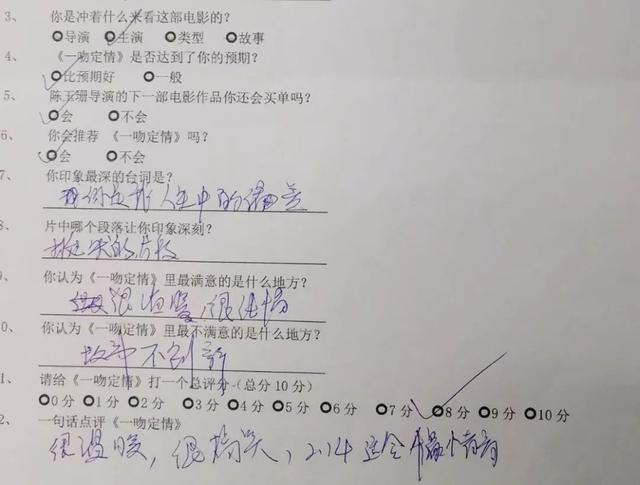 3、 你是冲着什么来看这部电影的?
○导演 ○主演 ○类型 ○故事
4、 《一吻定情》是否达到了你的预期?
○比预期好 ○一般
5、 陈玉珊导演的下一部电影作品你还会买单吗?
○会 ○不会
6、 你会推荐《一吻定情》吗?
○会 ○不会
7、 你印象最深的台词是?
人生中的
8、 片中哪个段落让你印象深刻?
的片段
你认为《一吻定情》里最满意的是什么地方?
很温暖,很
0、 你认为《一吻定情》里最不满意的是什么地方?
故事不创新
1、 请给《一吻定情》打一个总评分 (总分 10 分)
○0 分 ○1 分 ○2 分 ○3 分 ○4 分 ○5 分 ○6 分 ○7 分 ○8 分 ○9 分 ○10 分
2、 一句话点评《一吻定情》
很温暖,很搞笑,